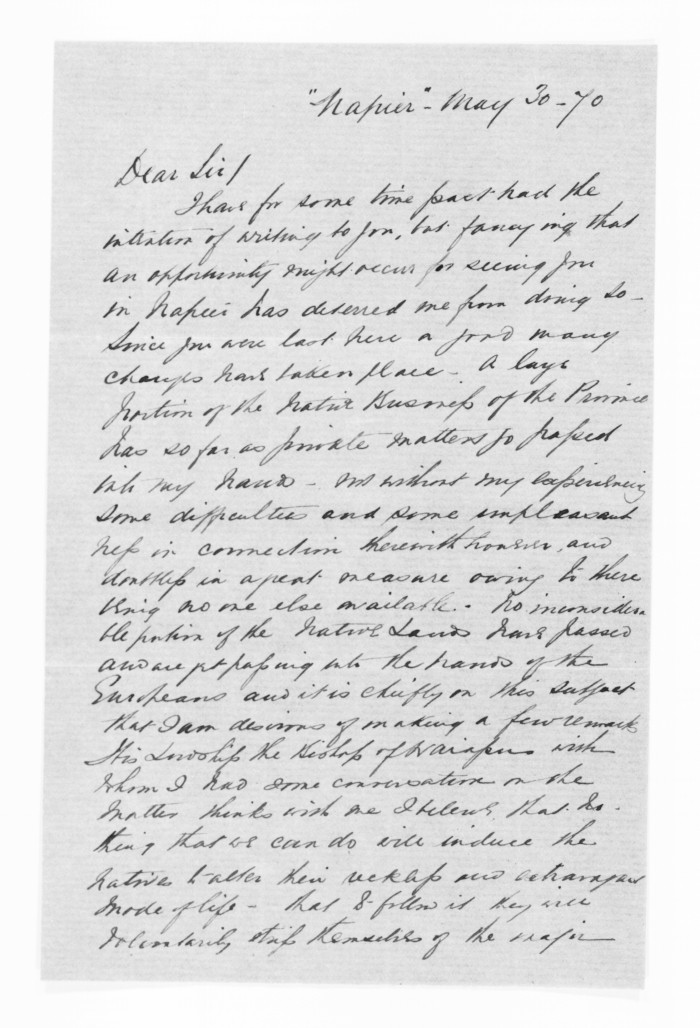 "Napier" - May 30 - 70
Dear Sir/
I have for some time past had the
intention of writing to you, but fancying that
an opportunity might occur for seeing you
in Napier has deterred me from doing so -
Since you were last here a good many
changes have taken place - A large
portion of the Native Business of the Province
has so far as private matters go passed
into my hands - not without my experiencing
some difficulties and some unpleasant
ness in connection therewith however, and
doubtless in a great measure owing to there
being no one else available. No inconsidera
ble portion of the Native Lands have passed
and are yet passing into the hands of the
Europeans and it is chiefly on this subject
that I am desirous of making a few remarks
His Lordship the Bishop of Waiapu with
whom I had some conversation on the
matter thinks with me I believe, that no-
thing that we can do will induce the
Natives to alter their reckless and extravagant
mode of life - that &
follows it they will
voluntarily strip themselves of the major